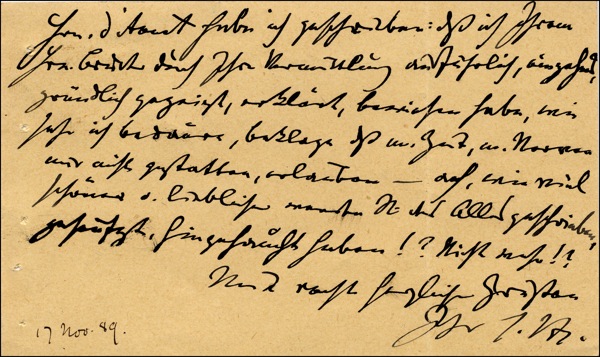 Hrn. d'Aout habe ich geschrieben: dß ich Ihrem
Hrn. Bruder durch Ihre Vermittlung ausführlich, eingehend,
gründlich gezeigt, erklärt, bewiesen habe, wie
sehr ich bedaure, beklage dß m. Zeit, m. Nerven
mir nicht gestatten, erlauben — ach, wie viel
schöner u. lieblicher werden Sie das Alles geschrieben,
geseufzt, hingehaucht haben!? Nicht wahr!?
Mit recht herzlichen Grüßen
Ihr J. Br.
17 Nov. 89.